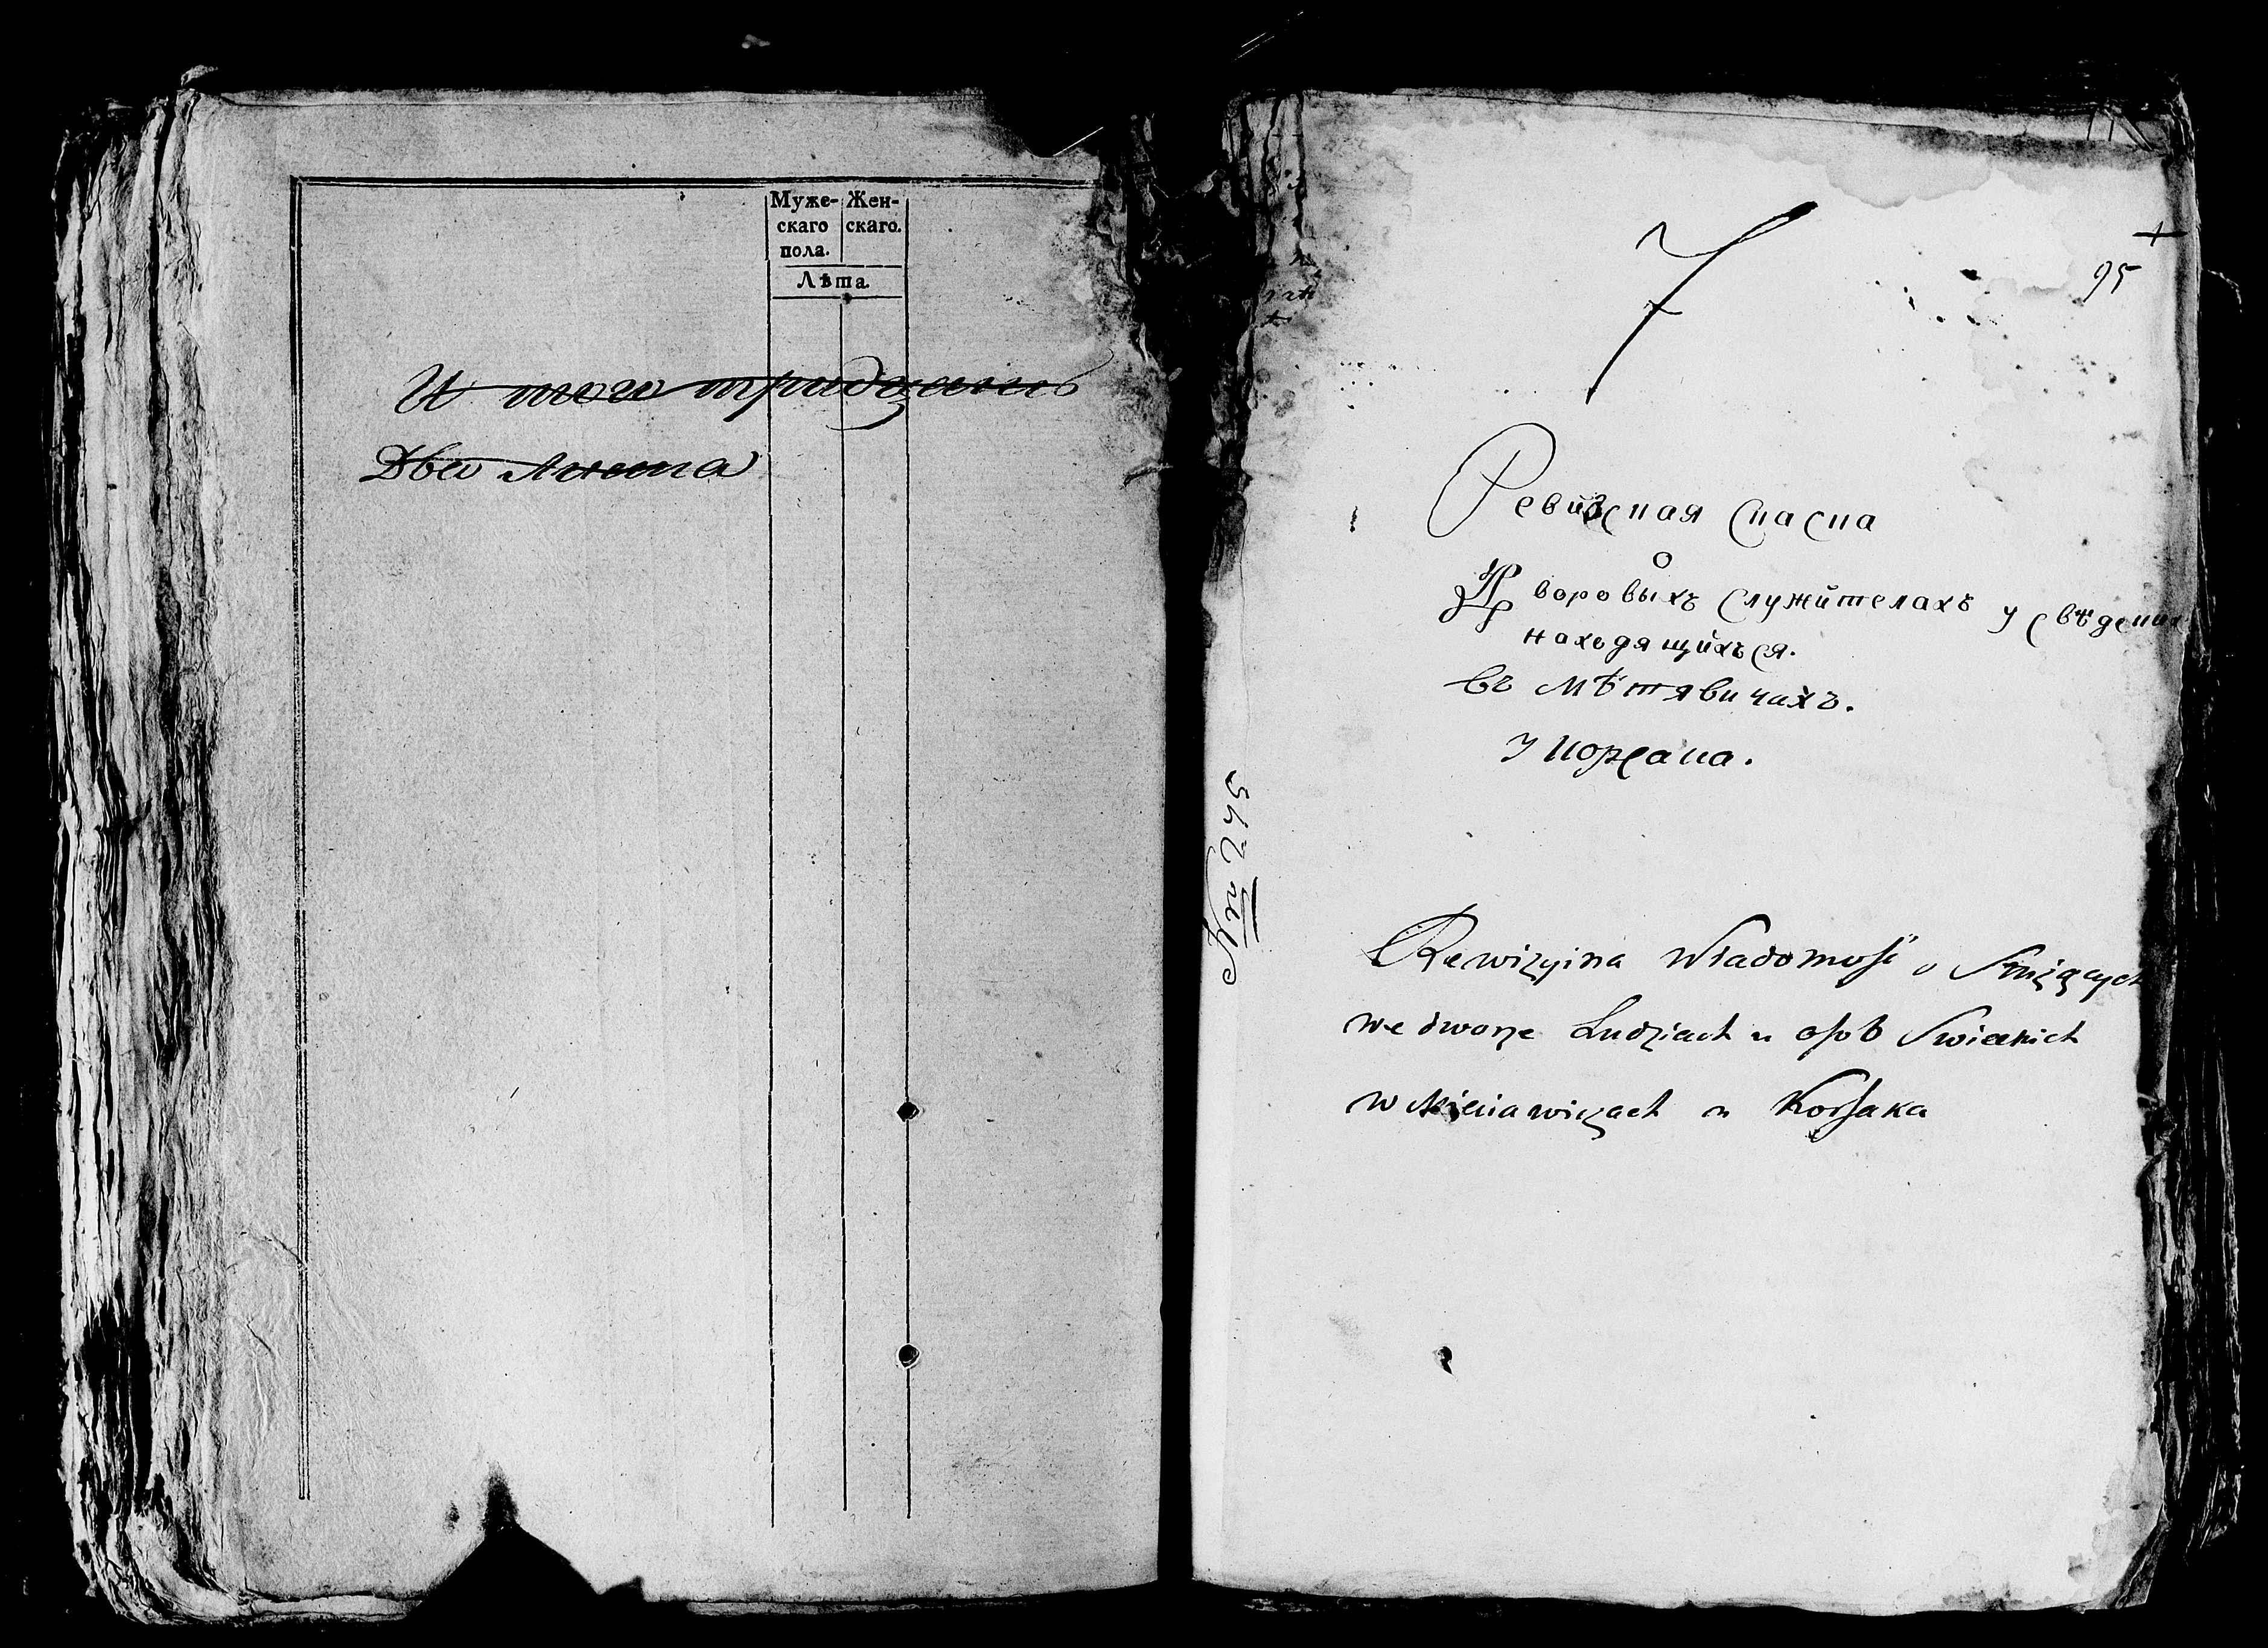 Муже-
скаго
пола.
Жен-
скаго.
Лѣта
И того тридцать
Два Листа
7
95
Ревизская Скаска
О
Дворовыхъ служителахъ у свѣцких
находящихъся.
въ Мѣтявичахъ.
у Корсака.
Nro 245
Rewizyina Wiadomość o Służących
we dworze Ludziach u osob Swieckich
w Mieciawiczach u Korsaka